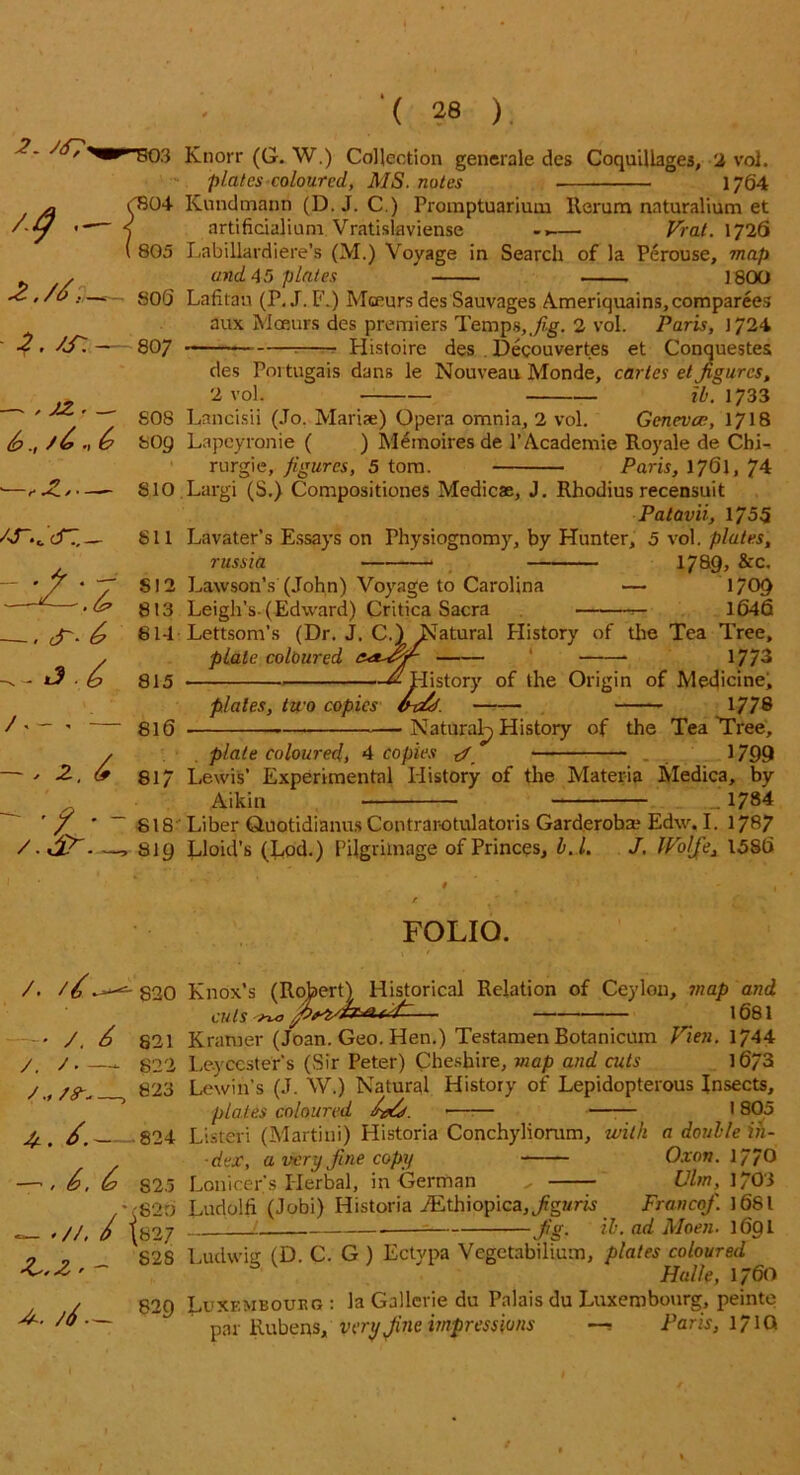 ( 28 )
2. 15, 803 Knorr (G. W.) Collection generale des Coquillages, 2 vol.
plates coloured, MS. notes ——— 1764
1. 9 . — { 804 Kundmann (D. J. C.) Promptuarium Rerum naturalium et
artificialium Vratislaviense —— Vrat. 1726
805 Labillardiere's (M.) Voyage in Search of la Pérouse, map
and 45 plates —— —— 1800
2, 16, — 806 Lafitau (P. J. F.) Mœurs des Sauvages Ameriquains, comparées
aux Mœurs des premiers Temps, fig. 2 vol. Paris, 1724
2, 15. — 807 ——— Histoire des Decouvertes et Conquestes
des Portugais dans le Nouveau Monde, cartes et figures,
2 vol. ——— ——— ib. 1733
—, 12, — 808 Lancisii (Jo. Mariæ) Opera omnia, 2 vol. Genevæ, 1718
6., 16., 6 809 Lapeyronie ( ) Mémoires de l'Academie Royale de Chi-
rurgie, figures, 5 tom. ——— Paris, 1761, 74
—, 2, . — 810 Largi (S.) Compositiones Medicæ, J. Rhodius recensuit
Patavii, 1755
15., 5., — 811 Lavater's Essays on Physiognomy, by Hunter, 5 vol. plates,
russia ——— ——— 1789, &c.
— . 7 . — 812 Lawson's (John) Voyage to Carolina — 1709
. 6 813 Leigh's (Edward) Critica Sacra ——— 1646
—, 5. 6 814 Lettsom's (Dr. J. C.) Natural History of the Tea Tree,
plate coloured —— —— 1773
— 3 . 6 815 ——— History of the Origin of Medicine,
plates, two copies bds. —— —— 1778
1 . — . — 816 ——— Natural History of the Tea Tree,
plate coloured, 4 copies ——— 1799
—, 2, 6 817 Lewis' Experimental History of the Materia Medica, by
Aikin ——— ——— 1784
— . 7 . — 818 Liber Quotidianus Contrarotulatoris Garderobæ Edw. I. 1787
1 . . — 819 Lloid's (Lod.) Pilgrimage of Princes, b. l. J. Wolfe, 1586
FOLIO.
1. 16 . — 820 Knox's (Robert) Historical Relation of Ceylon, map and
cuts no portrait —— ——— 1681
—. 1, 6 821 Kramer (Joan. Geo. Hen.) Testamen Botanicum Vien. 1744
1, 1. — 822 Leycester's (Sir Peter) Cheshire, map and cuts 1673
1., 18. — 823 Lewin's (J. W.) Natural History of Lepidopterous Insects,
plates coloured bds. —— —— 1805
4. 6. — 824 Listeri (Martini) Historia Conchyliorum, with a double in-
dex, a very fine copy —— Oxon. 1770
—, 6, 6 825 Lonicer's Herbal, in German —— Ulm, 1703
—, 11, 6 { 826 Ludolfi (Jobi) Historia Æthiopica, figuris Francof. 1681
827 ——— ——— fig. ib. ad Moen. 1691
2, 2, — 828 Ludwig (D. C. G ) Ectypa Vegetabilium, plates coloured
Halle, 1760
4. 16 . — 829 Luxembourg : la Gallerie du Palais du Luxembourg, peinte
par Rubens, very fine impressions — Paris, 1710